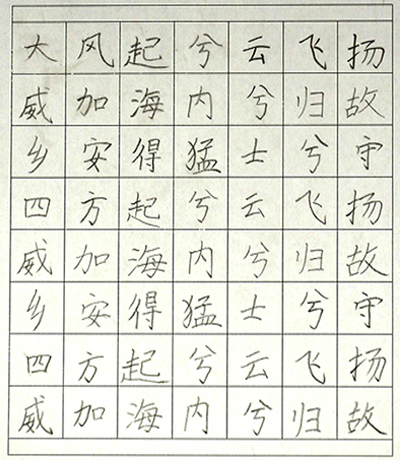 大风起兮云飞扬
威加海内兮归故
乡安得猛士兮守
四方起兮云飞扬
威加海内兮归故
乡安得猛士兮守
四方起兮云飞扬
威加海内兮归故